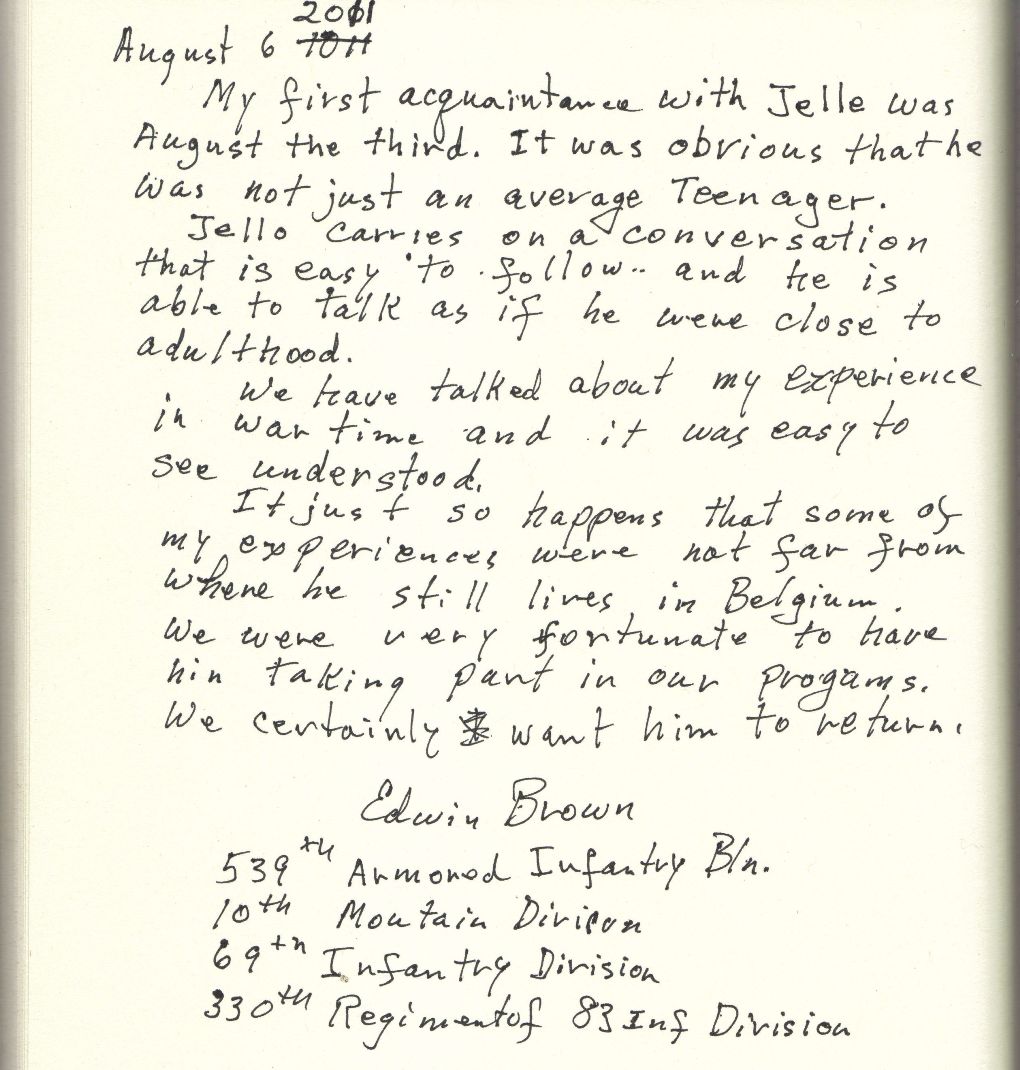 2011
August 6 1011
My first acquaintance with Jelle was
August the third. It was obvious that he
was not just an average Teenager.
Jello carries on a conversation
that is easy to follow.. and he is
able to talk as if he were close to
adulthood.
We have talked about my experience
in war time and it was easy to
see understood.
It just so happens that some of
my experiences were not far from
where he still lives in Belgium.
We were very fortunate to have
hin taking part in our progams.
We certainly want him to return.
Edwin Brown
539th Armored Infantry Bln.
10th Moutain Division
69th Infantry Division
330th Regiment of 83 Inf Division